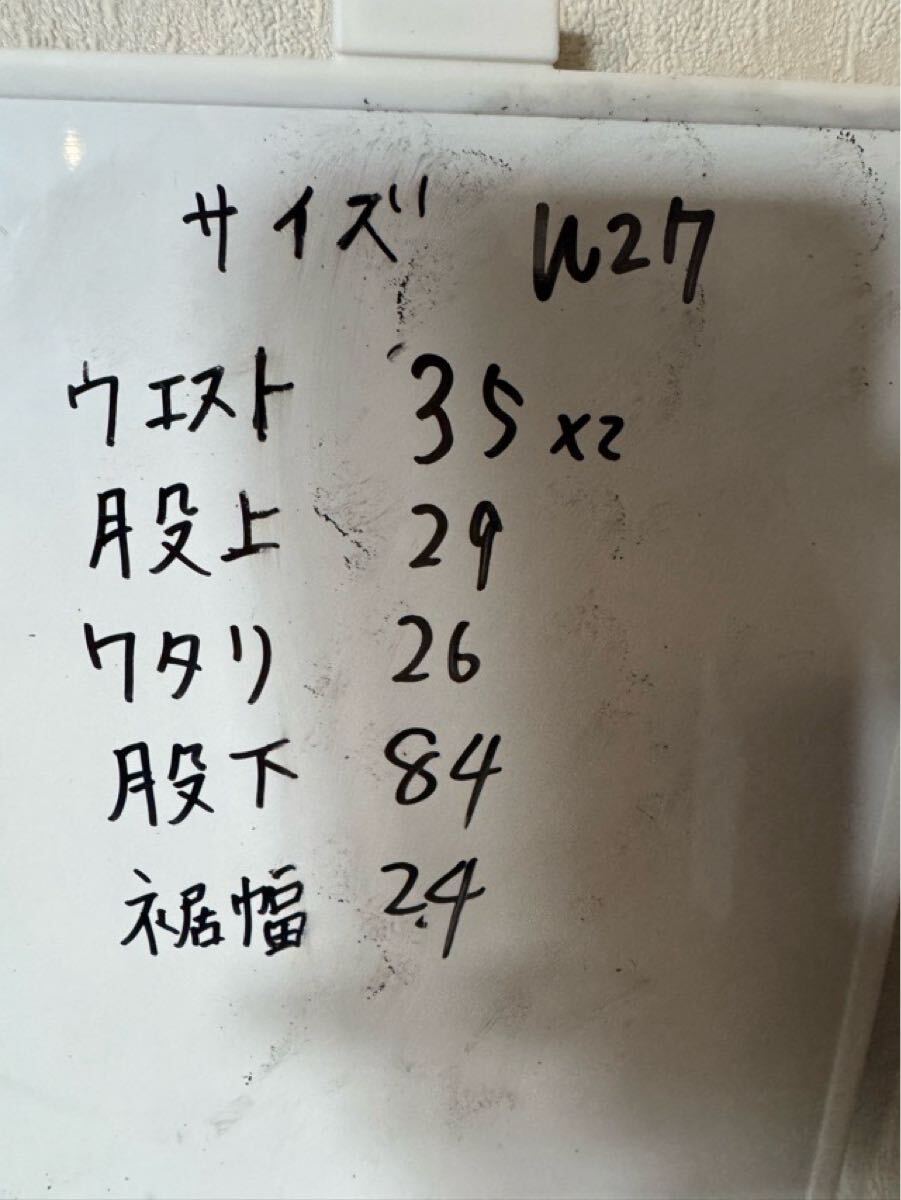 サイズ W27
ウエスト 35 x2
股上 29
ワタリ 26
股下 84
裾幅 24